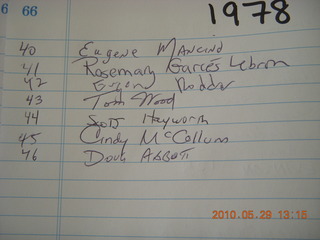 6 66 1978
40 Eugene Mancino
41 Rosemary Garcés Lebron
42
43 Tom Wood
44 Scott Hayworth
45 Cindy McCollum
46 Doug Abbott
2010.05.29 13:15